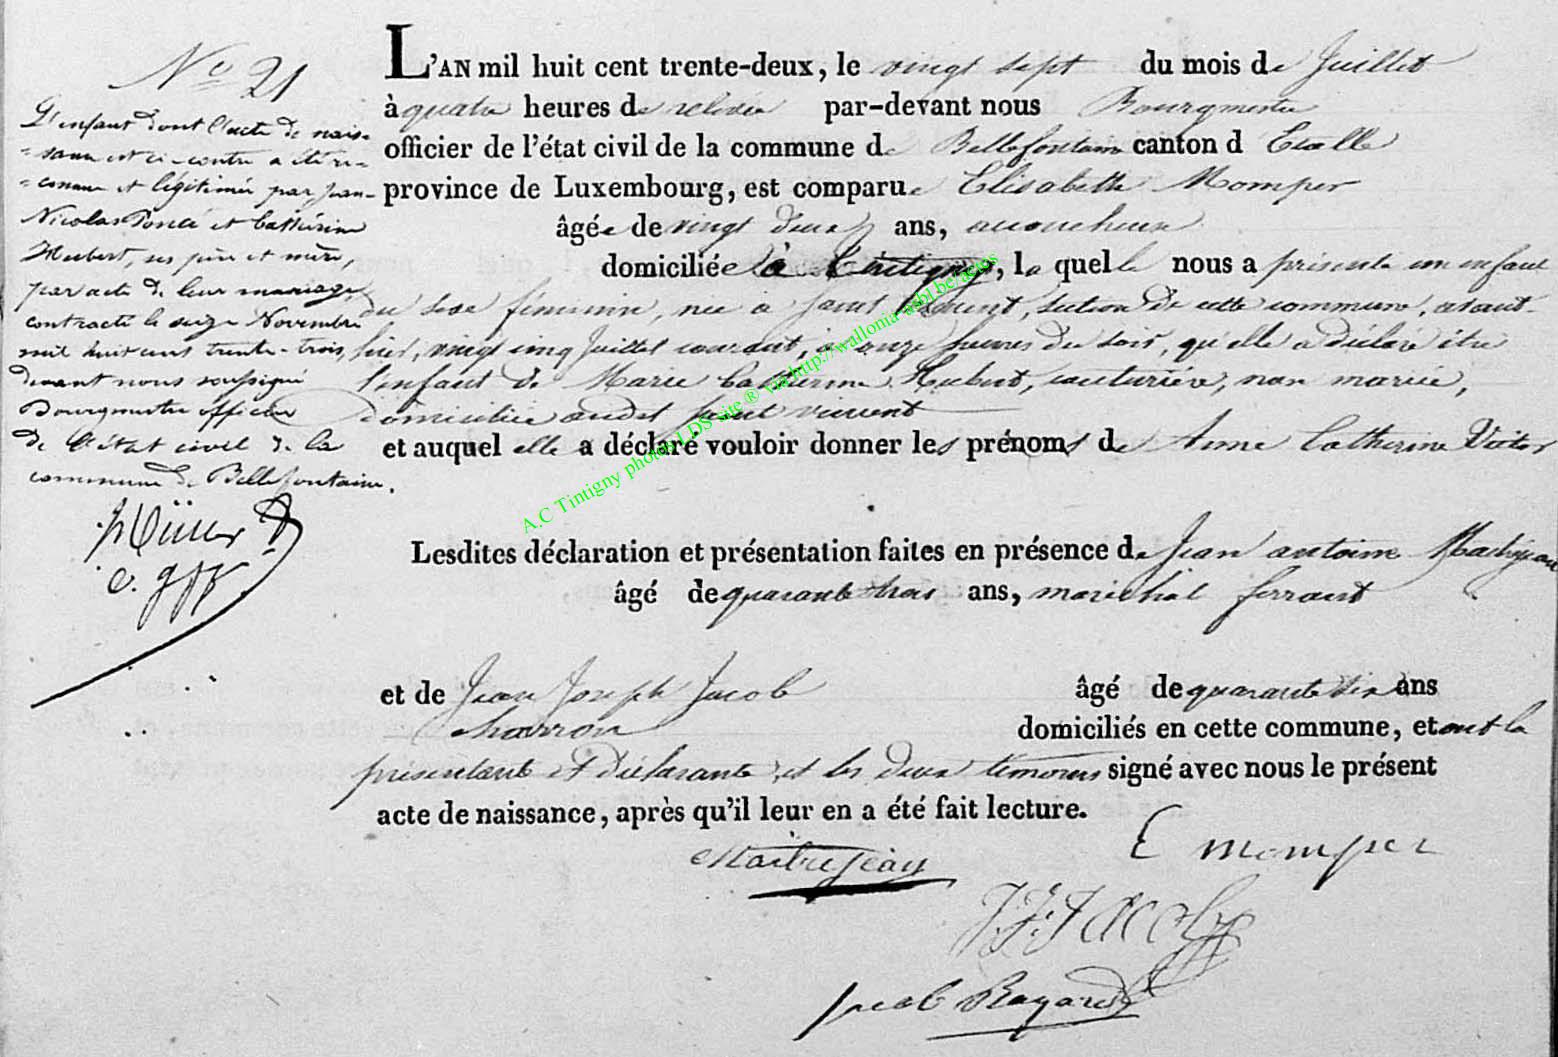 N° 21
L'enfant dont l'acte de nais-
-sance est ci-contre a été re-
-connu et légitimé par Jean-
Nicolas Poncé et Catherine
Hubert, ses père et mère,
par acte de leur mariage
contracté le seize Novembre
mil huit cent trente-trois,
devant nous soussigné
Bourgmestre officier
de l'état civil de la
commune de Bellefontaine.
L'AN mil huit cent trente-deux, le vingt sept du mois de Juillet
à quatre heures de relevée par-devant nous Bourgmestre
officier de l'état civil de la commune de Bellefontaine canton d Etalle
province de Luxembourg, est comparue Elisabeth Momper
âgée de vingt deux ans, accoucheuse
domiciliée à Tintigny, la quelle nous a présenté un enfant
du sexe féminin, née à Saint Vincent, section de cette commune, avant-
hier, vingt cinq Juillet courant, à onze heures du soir, qu'elle a déclaré être
l'enfant de Marie Catherine Hubert, couturière, non mariée,
domiciliée audit Saint Vincent
et auquel elle a déclaré vouloir donner les prénoms de Anne Catherine
Lesdites déclaration et présentation faites en présence de Jean antoine Maitrejean
âgé de quarante trois ans, maréchal ferrant
et de Jean Joseph Jacob âgé de quarante six ans
charron domiciliés en cette commune, et ont la
présentante et déclarante, et les deux témoins signé avec nous le présent
acte de naissance, après qu'il leur en a été fait lecture.
Maitrejean
E momper
J. J. Jacob
A.C Tintigny photos LDS site ® via http://wallonia-asbl.be/actes